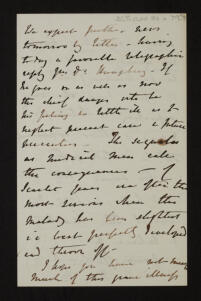 We expect further news
tomorrow by letter - having
today a favorable telegraphic
reply from Dr Humphry. If
he goes on as well as now
the chief danger is to
his feeling so little ill as to
neglect present care & future
precaution. The sequelae
as medical men call
the consequences - of
Scarlet fever are often the
most serious when the
Malady has been slightest
i.e. least perfectly developed
and thrown off -
I hope you have not
much of this grave illness